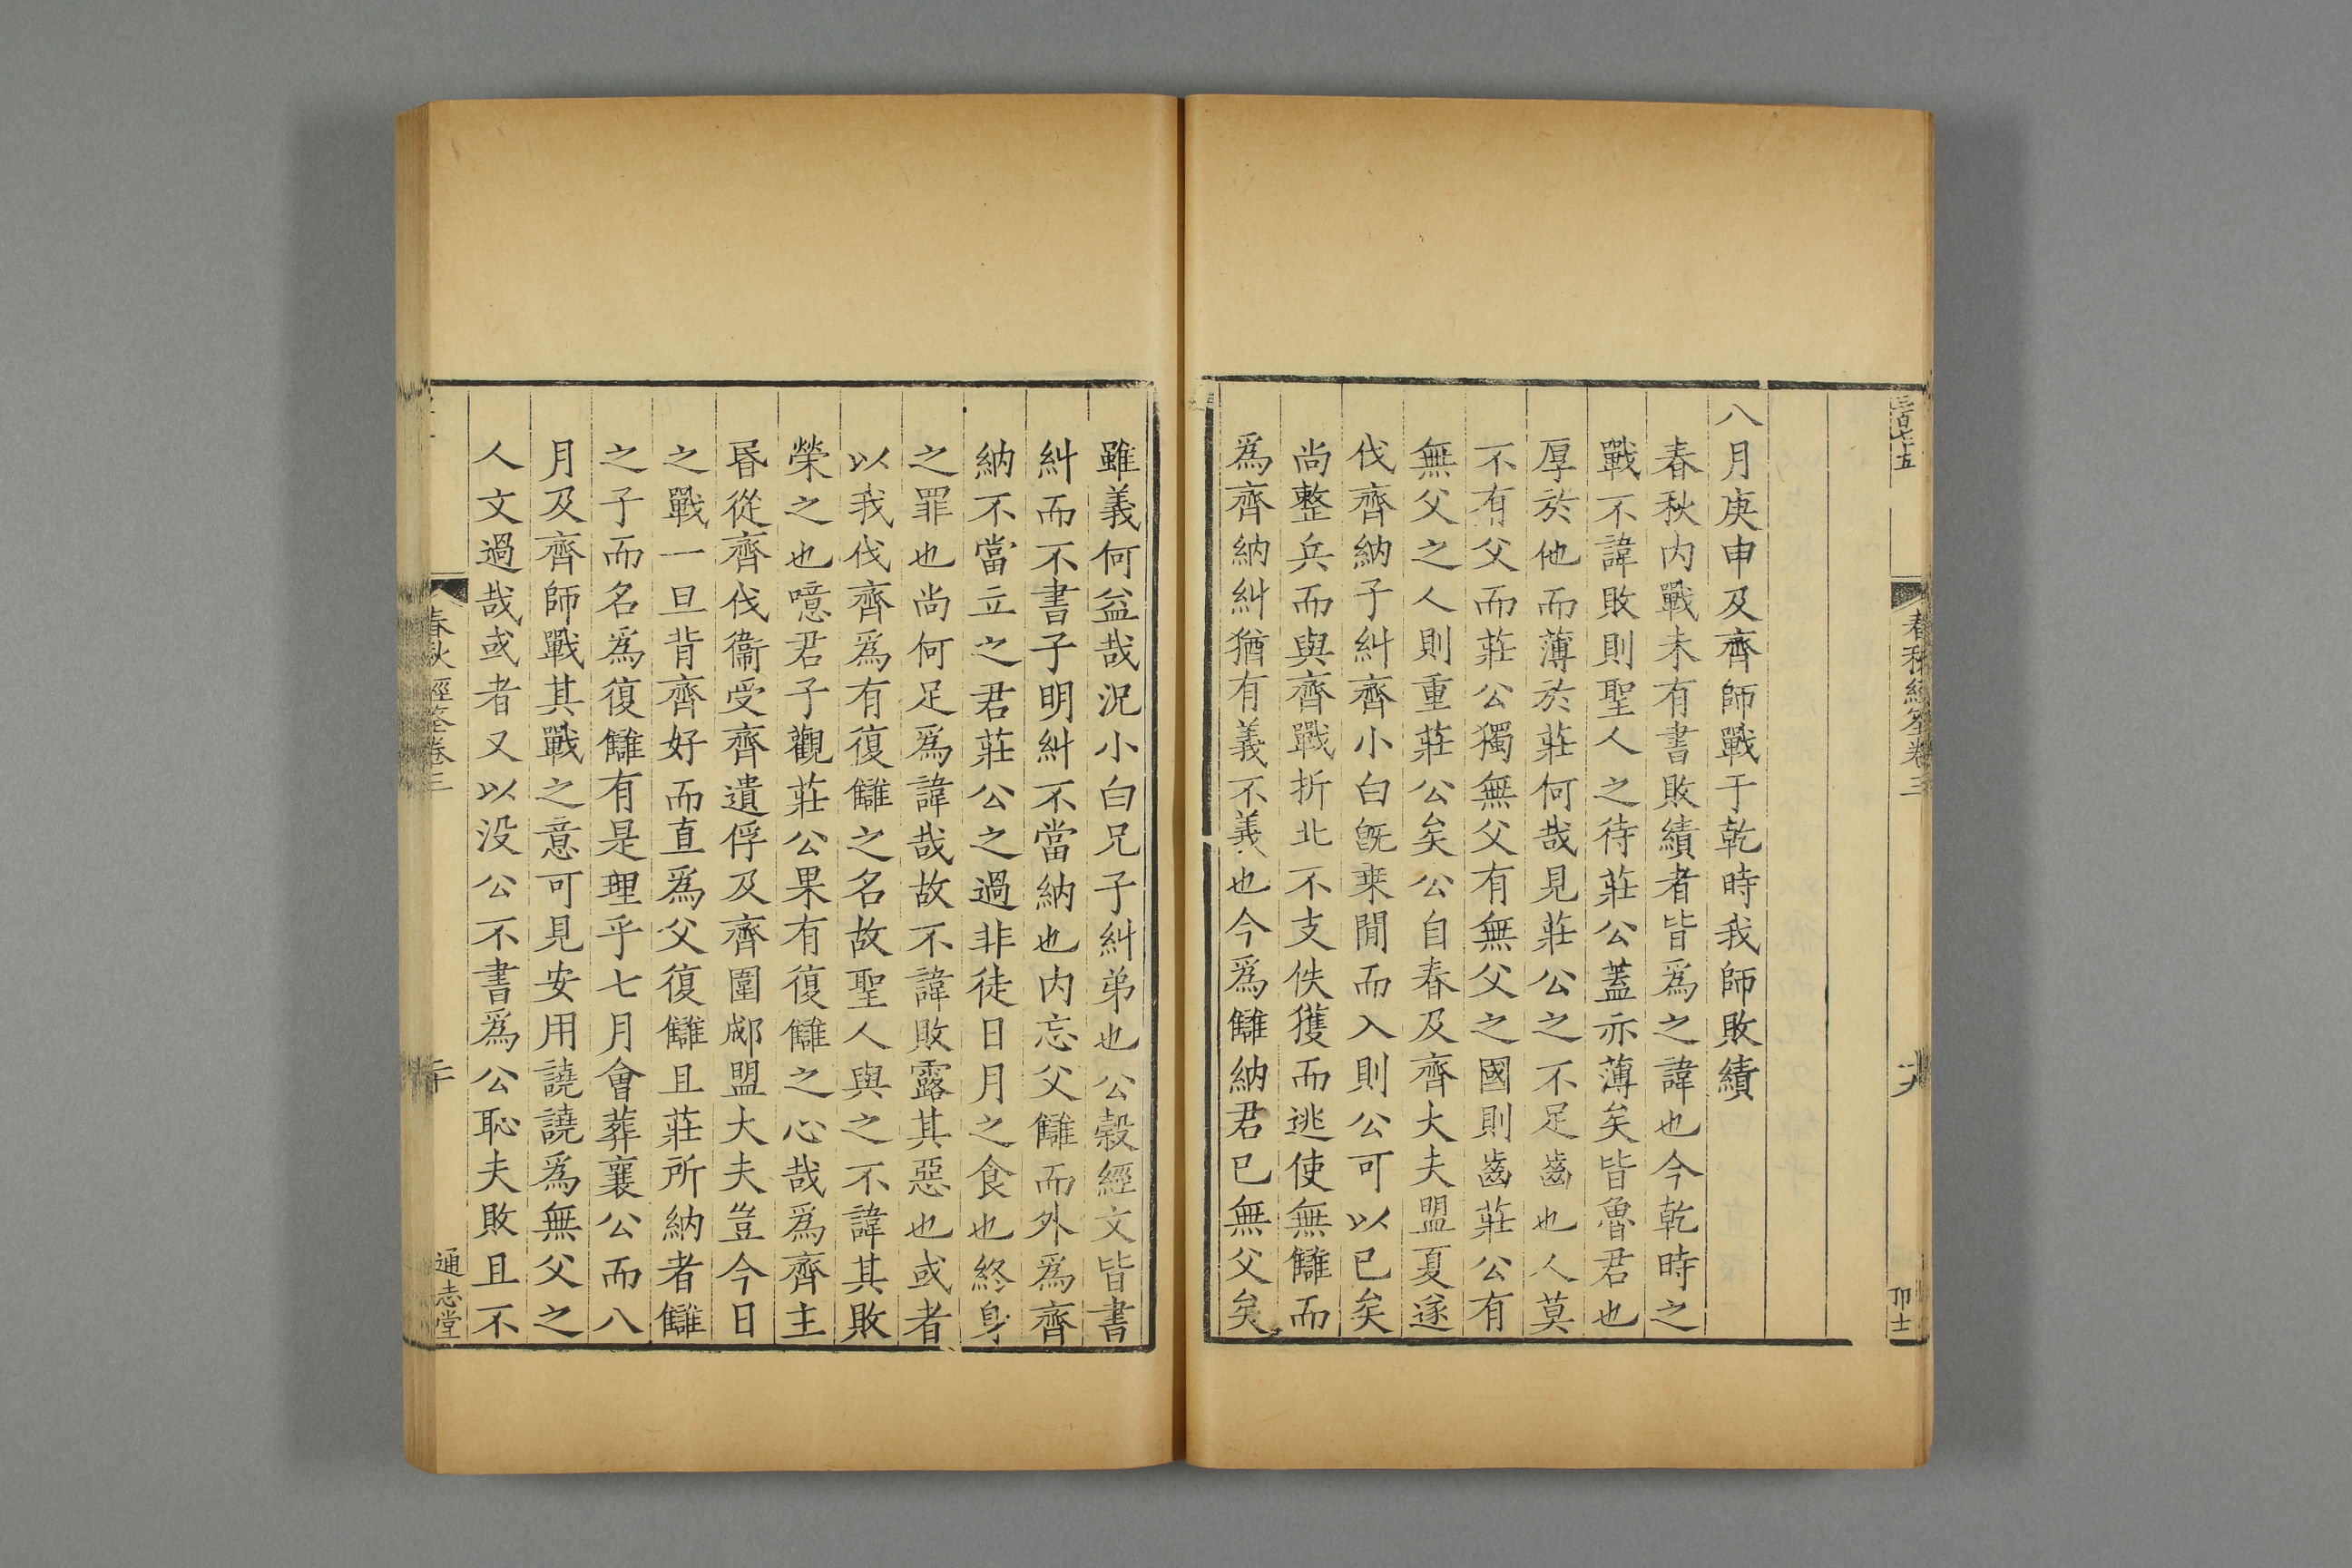 三百七十五
春秋經筌卷三
八月庚申及齊師戰于乾時我師敗績
春秋内戰未有書敗績者皆爲之諱也今乾時之
戰不諱敗則聖人之待莊公蓋亦薄矣皆魯君也
厚於他而薄於莊何哉見莊公之不足齒也人莫
不有父而莊公獨無父有無父之國則齒莊公有
無父之人則重莊公矣公自春及齊大夫盟夏遂
伐齊納子糾齊小白旣乗閒而入則公可以已矣
尚整兵而與齊戰折北不支佚獲而逃使無讎而
爲齊納糾猶有義不義也今爲讎納君已無父矣
雖義何益哉況小白兄子糾弟也公榖經文皆書
糾而不書子明糾不當納也内忘父讎而外爲齊
納不當立之君莊公之過非徒日月之食也終身
之罪也尚何足爲諱哉故不諱敗露其惡也或者
以我伐齊爲有復讎之名故聖人與之不諱其敗
榮之也噫君子觀莊公果有復讎之心哉爲齊主
昏從齊伐衞受齊遺俘及齊圍郕盟大夫豈今日
之戰一旦背齊好而直爲父復讎且莊所納者讎
之子而名爲復讎有是理乎七月會葬襄公而八
月及齊師戰其戰之意可見安用譊譊爲無父之
人文過哉或者又以没公不書爲公恥夫敗且不
春秋經筌卷三
二十
通志堂